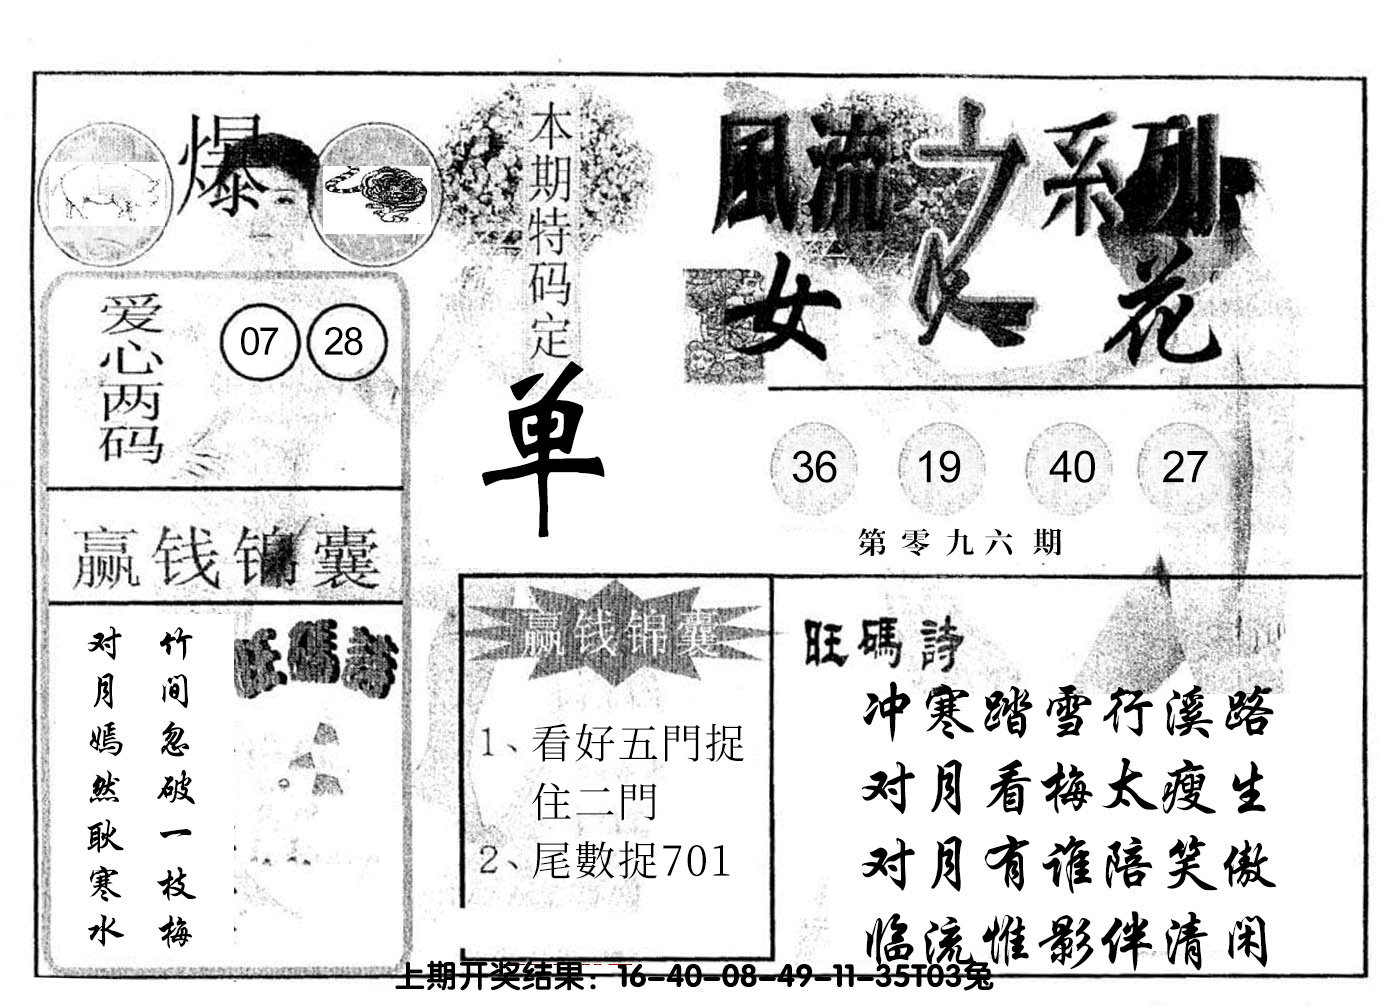 爆
本期特码定
单
風流之系列
女人花
爱心两码
07 28
36 19 40 27
第零九六期
赢钱锦囊
竹间忽破一枝梅
对月嫣然耿寒水
旺碼詩
赢钱锦囊
1、看好五門捉
住二門
2、尾數捉701
旺碼詩
冲寒踏雪行溪路
对月看梅太瘦生
对月有谁陪笑傲
临流惟影伴清闲
上期开奖结果：16-40-08-49-11-35T03兔